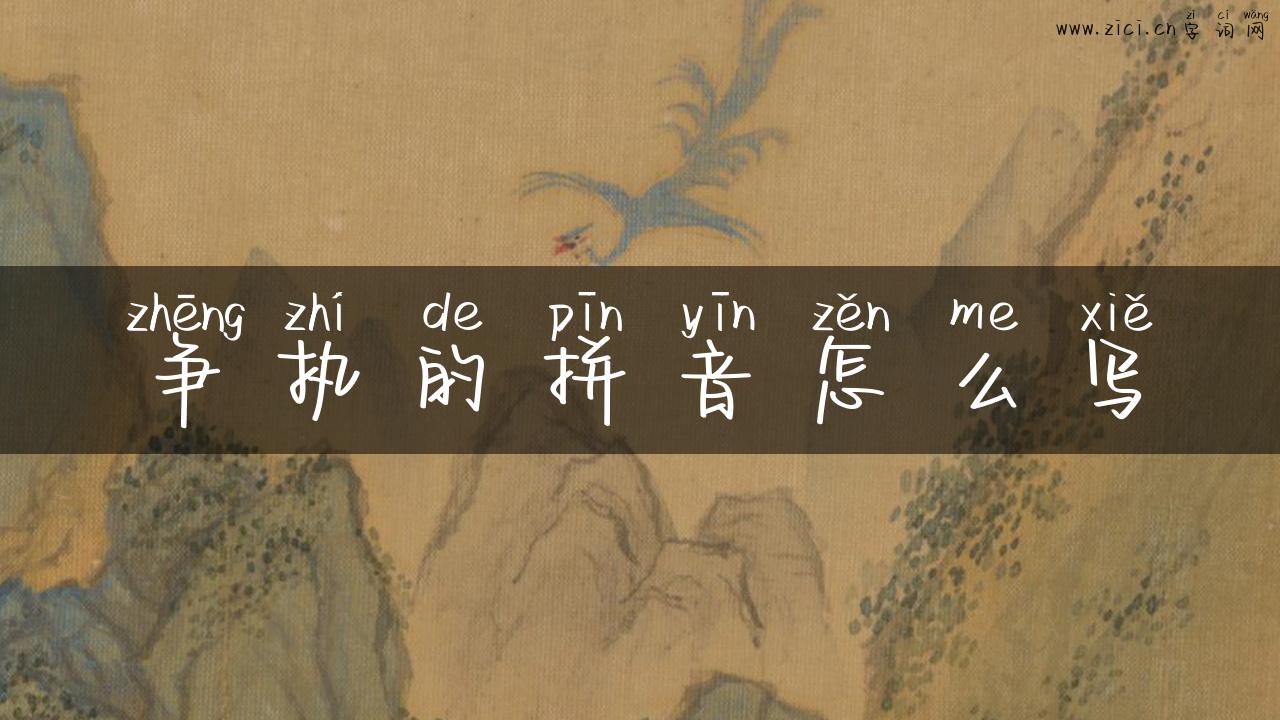 zì cí wǎng
www.zici.cn字词网
zhēng zhí de pīn yīn zěn me xiě
争执的拼音怎么写